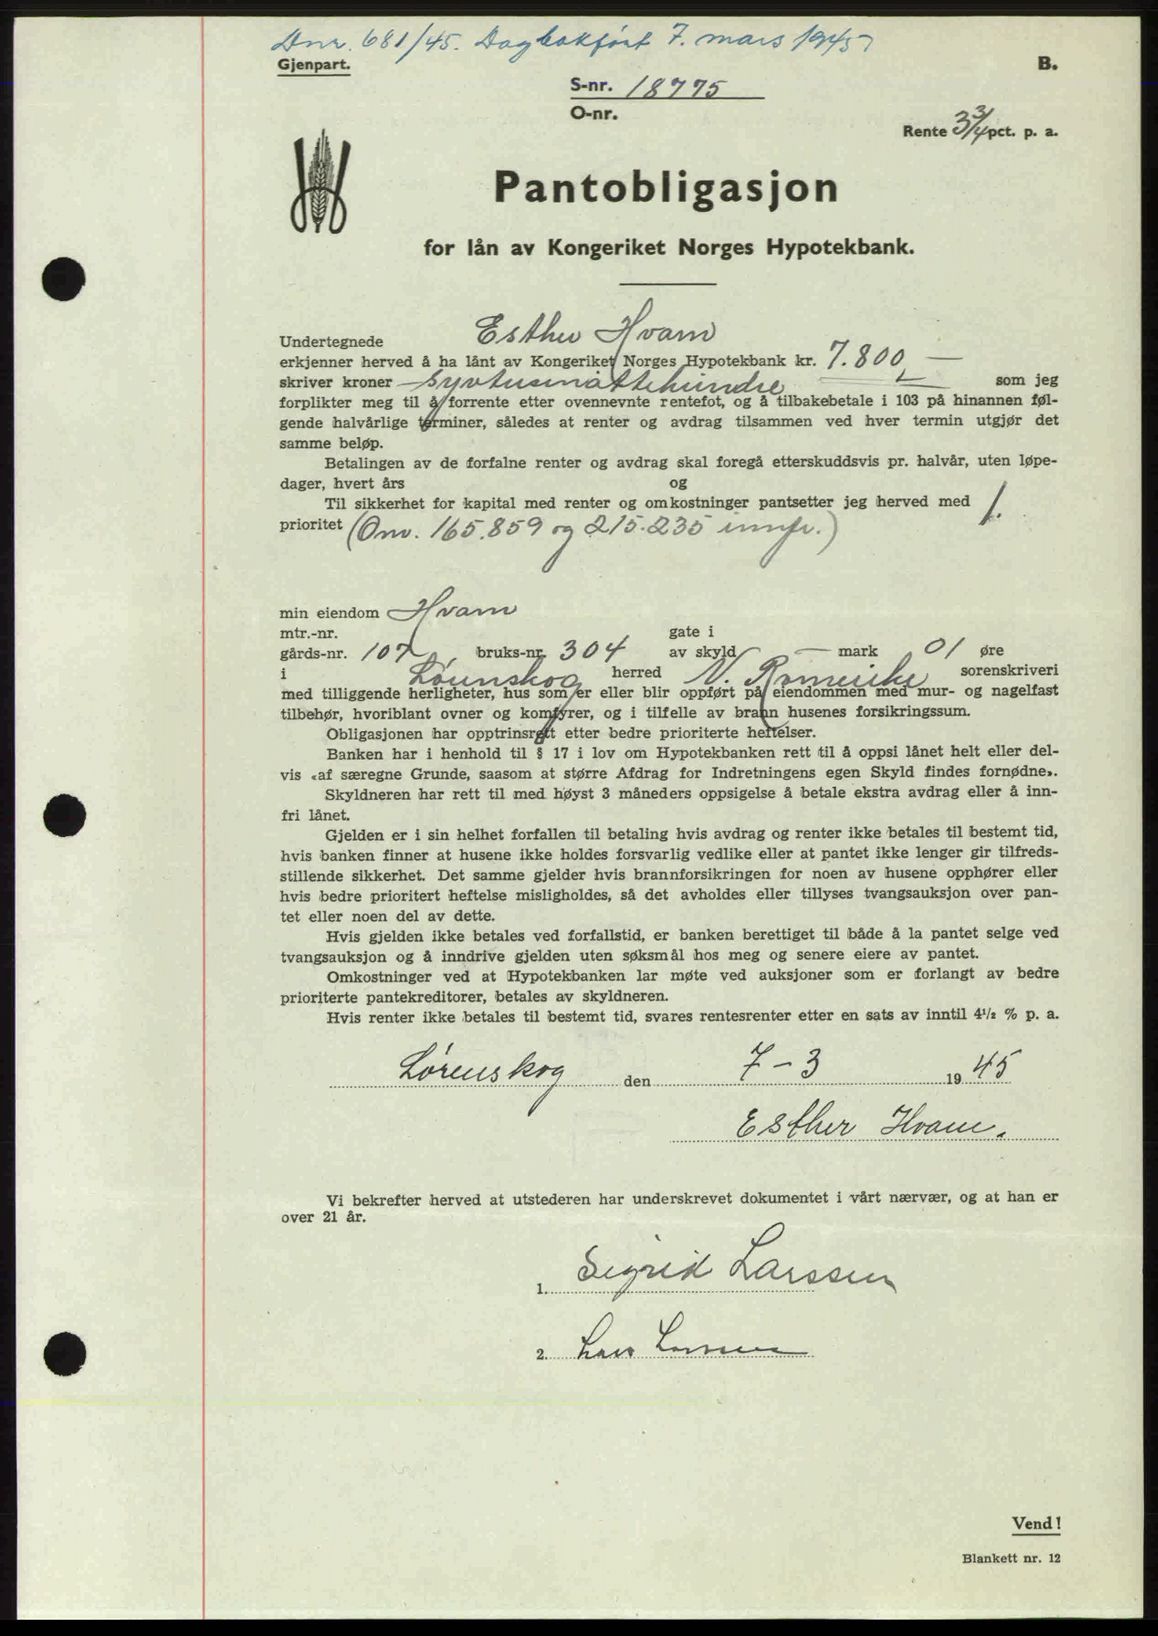 Dnr. 681/45. Dagbokført 7. mars 1945
Gjenpart.
B.
S-nr. 18775
O-nr.
Rente 3 3/4 pct. p. a.
Pantobligasjon
for lån av Kongeriket Norges Hypotekbank.
Undertegnede Esther Hvam
erkjenner herved å ha lånt av Kongeriket Norges Hypotekbank kr. 7.800,—
skriver kroner syvtusenåttehundre som jeg
forplikter meg til å forrente etter ovennevnte rentefot, og å tilbakebetale i 103 på hinannen føl-
gende halvårlige terminer, således at renter og avdrag tilsammen ved hver termin utgjør det
samme beløp.
Betalingen av de forfalne renter og avdrag skal foregå etterskuddsvis pr. halvår, uten løpe-
dager, hvert års og
Til sikkerhet for kapital med renter og omkostninger pantsetter jeg herved med 1.
prioritet (Omv. 165.859 og 215.235 innfr.)
min eiendom Hvam
mtr.-nr. gate i
gårds-nr. 107 bruks-nr. 304 av skyld — mark 01 øre
i Lørenskog herred N. Romerike sorenskriveri
med tilliggende herligheter, hus som er eller blir oppført på eiendommen med mur- og nagelfast
tilbehør, hvoriblant ovner og komfyrer, og i tilfelle av brann husenes forsikringssum.
Obligasjonen har opptrinsrett etter bedre prioriterte heftelser.
Banken har i henhold til § 17 i lov om Hypotekbanken rett til å oppsi lånet helt eller del-
vis «af særegne Grunde, saasom at større Afdrag for Indretningens egen Skyld findes fornødne».
Skyldneren har rett til med høyst 3 måneders oppsigelse å betale ekstra avdrag eller å inn-
fri lånet.
Gjelden er i sin helhet forfallen til betaling hvis avdrag og renter ikke betales til bestemt tid,
hvis banken finner at husene ikke holdes forsvarlig vedlike eller at pantet ikke lenger gir tilfreds-
stillende sikkerhet. Det samme gjelder hvis brannforsikringen for noen av husene opphører eller
hvis bedre prioritert heftelse misligholdes, så det avholdes eller tillyses tvangsauksjon over pan-
tet eller noen del av dette.
Hvis gjelden ikke betales ved forfallstid, er banken berettiget til både å la pantet selge ved
tvangsauksjon og å inndrive gjelden uten søksmål hos meg og senere eiere av pantet.
Omkostninger ved at Hypotekbanken lar møte ved auksjoner som er forlangt av bedre
prioriterte pantekreditorer, betales av skyldneren.
Hvis renter ikke betales til bestemt tid, svares rentesrenter etter en sats av inntil 4½ % p. a.
Lørenskog den 7-3 1945
Esther Hvam.
Vi bekrefter herved at utstederen har underskrevet dokumentet i vårt nærvær, og at han er
over 21 år.
1. Sigrid Larssen
2. Lars Larssen
Vend!
Blankett nr. 12